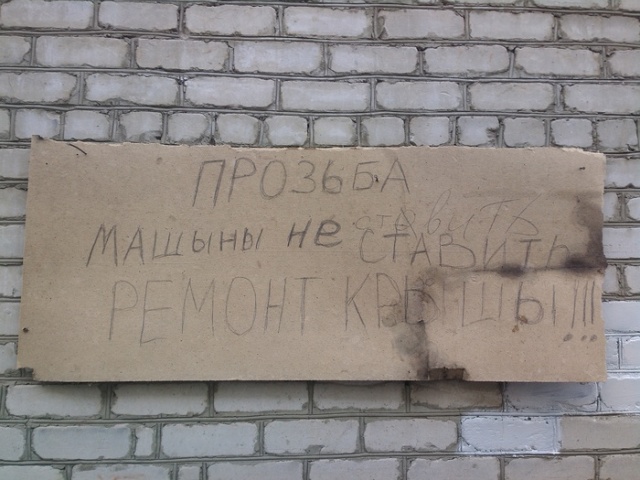 ПРОЗЬБА
МАШЫНЫ НЕ СТАВИТЬ
РЕМОНТ КРЫШЫ!!!